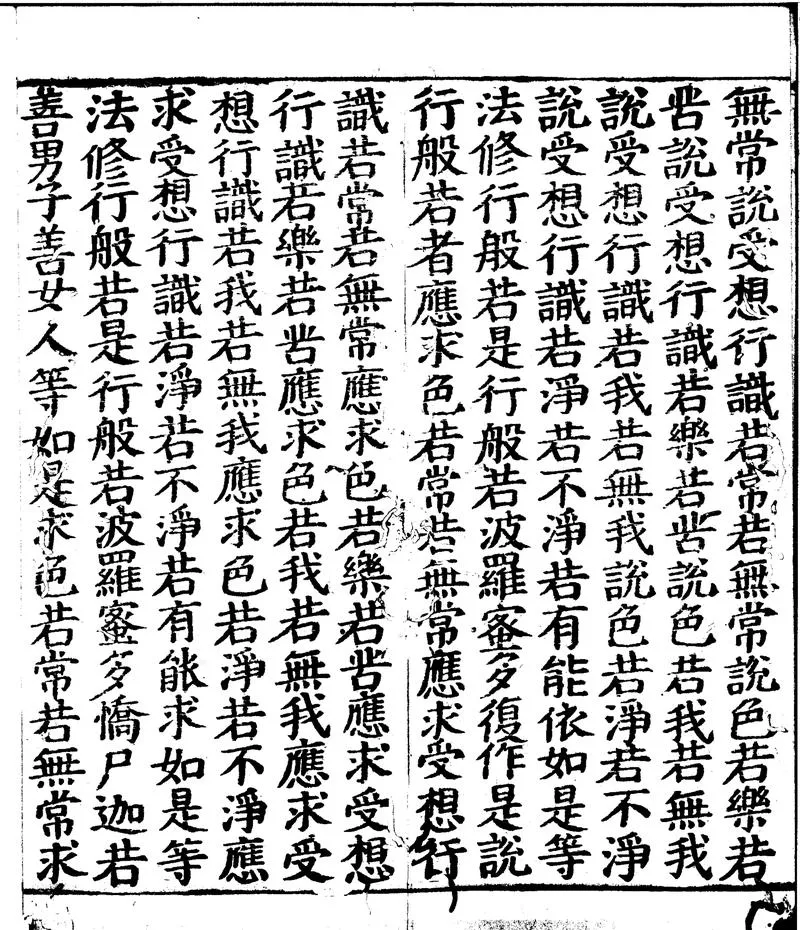 無常說受想行識若常若無常說色若樂若
苦說受想行識若樂若苦說色若我若無我
說受想行識若我若無我說色若淨若不淨
說受想行識若淨若不淨若有能依如是等
法修行般若是行般若波羅蜜多復作是說
行般若者應求色若常若無常應求受想行
識若常若無常應求色若樂若苦應求受想
行識若樂若苦應求色若我若無我應求受
想行識若我若無我應求色若淨若不淨應
求受想行識若淨若不淨若有能求如是等
法修行般若是行般若波羅蜜多憍尸迦若
善男子善女人等如是求色若常若無常求